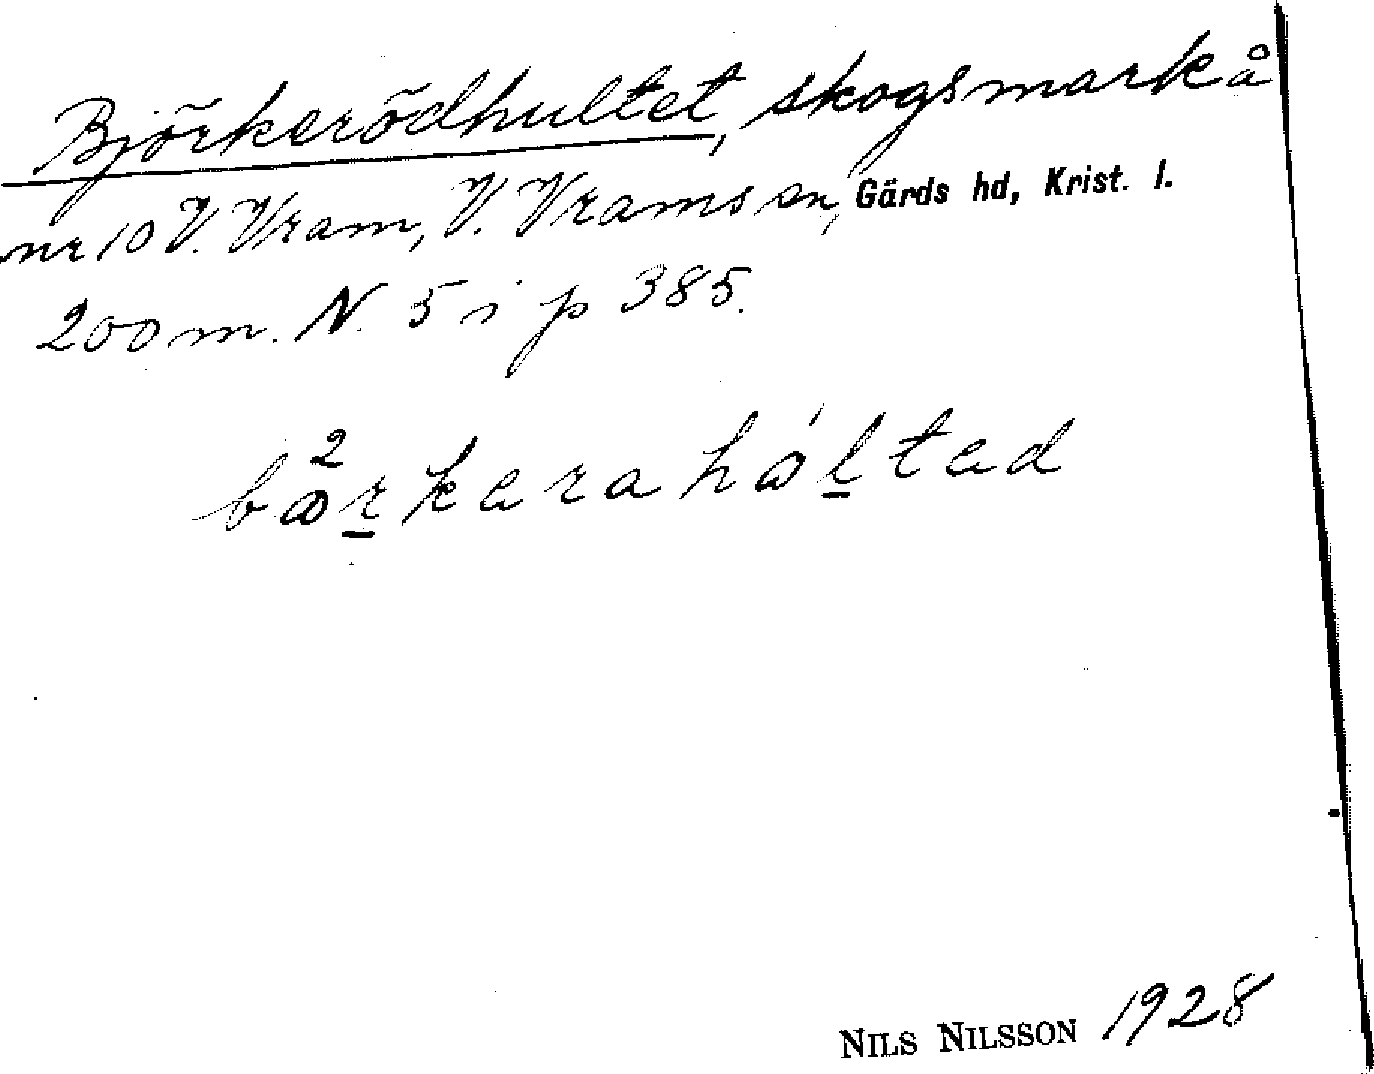 Björkerödhultet, skogsmark å
nr 10 V. Vram, V. Vrams sn, Gärds hd, Krist. l.
200 m. N. 5 i p 385.
Nils Nilsson 1928